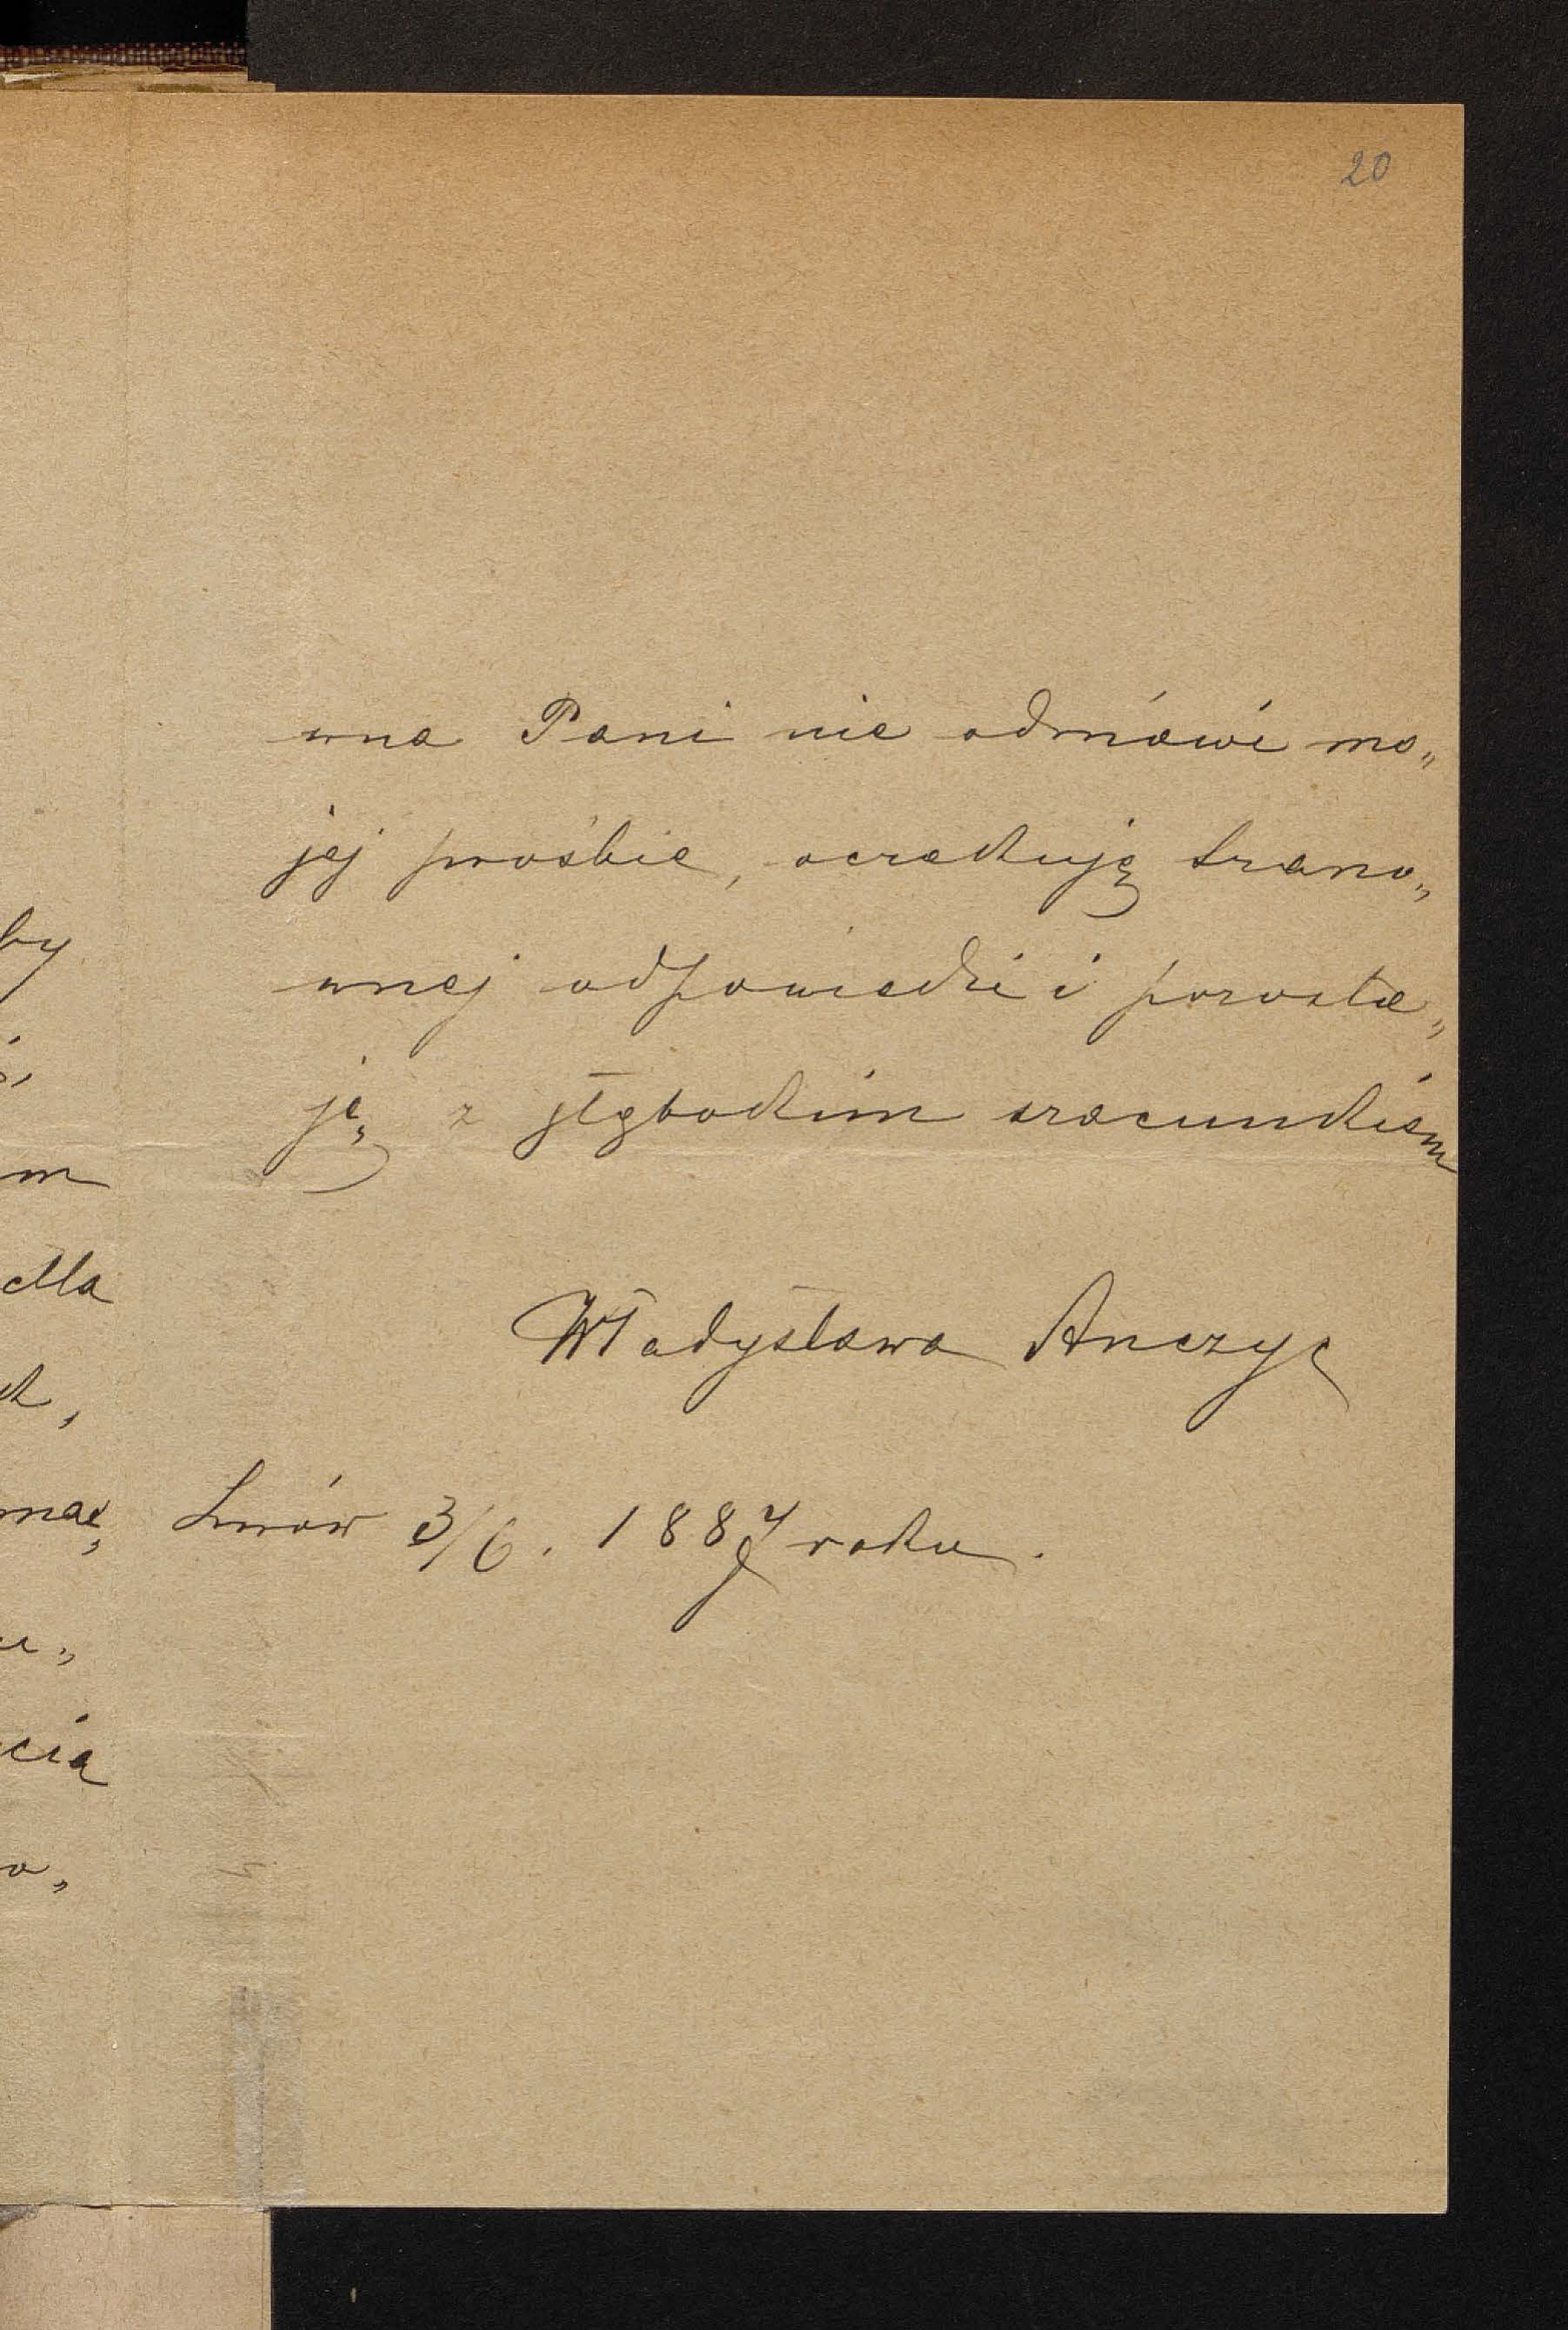 20
wna Pani nie odmówi mo„
jej prośbie, oczekuję szano„
wnej odpowiedzi i pozosta„
ję z głębokim szacunkiem
Władysława Anczyc
Lwów 3/6. 1887 roku.
by
m
dla
cia